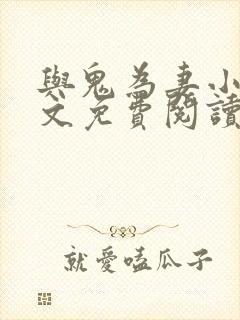 與鬼為妻小
文免費閱讀
就愛嗑瓜子